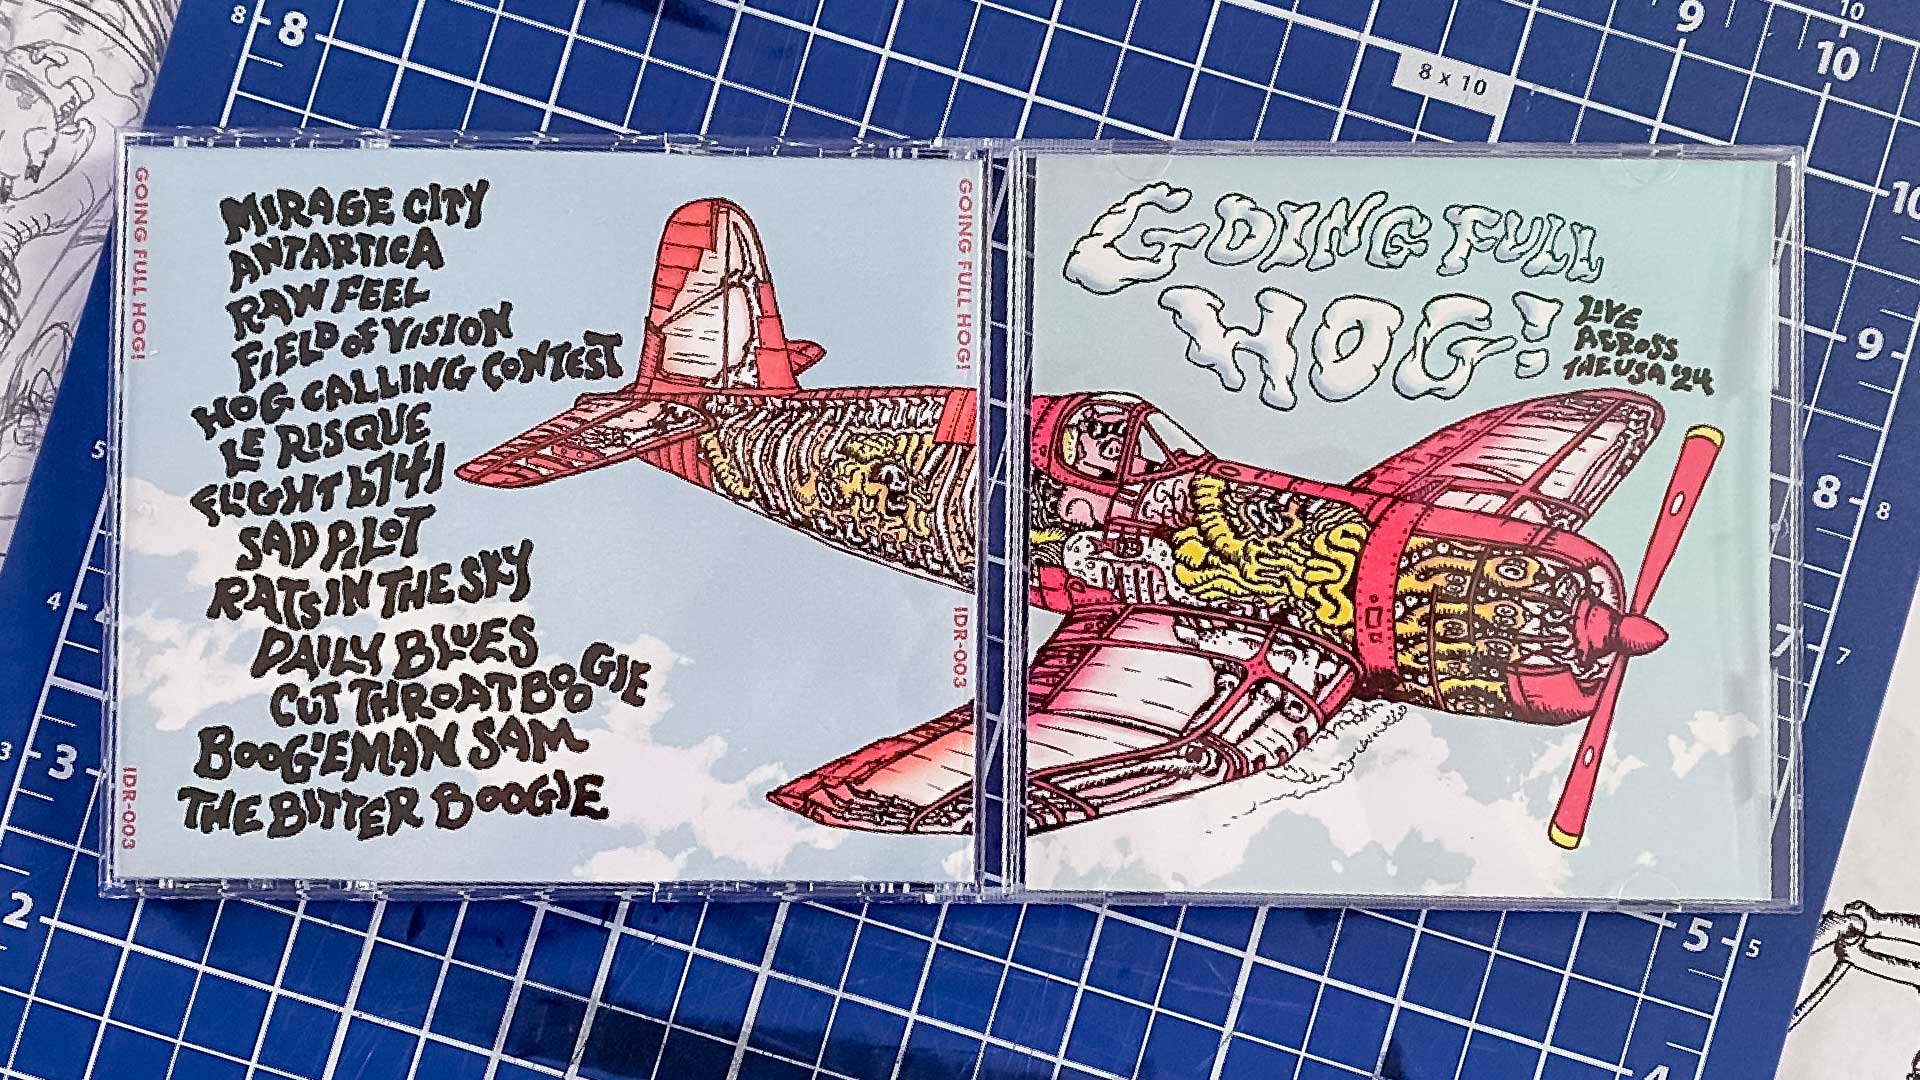 8
8
9
10
10
8 x 10
10
9
9
8
8
7
7
5
4
4
3
3
2
5
5
4
GOING FULL HOG!
IDR-003
MIRAGE CITY
ANTARTICA
RAW FEEL
FIELD OF VISION
HOG CALLING CONTEST
LE RISQUE
FLIGHT b741
SAD PILOT
RATS IN THE SKY
DAILY BLUES
CUT THROAT BOOGIE
BOOGIEMAN SAM
THE BITTER BOOGIE
GOING FULL HOG!
IDR-003
GOING FULL
HOG!
LIVE
ACROSS
THE USA '24